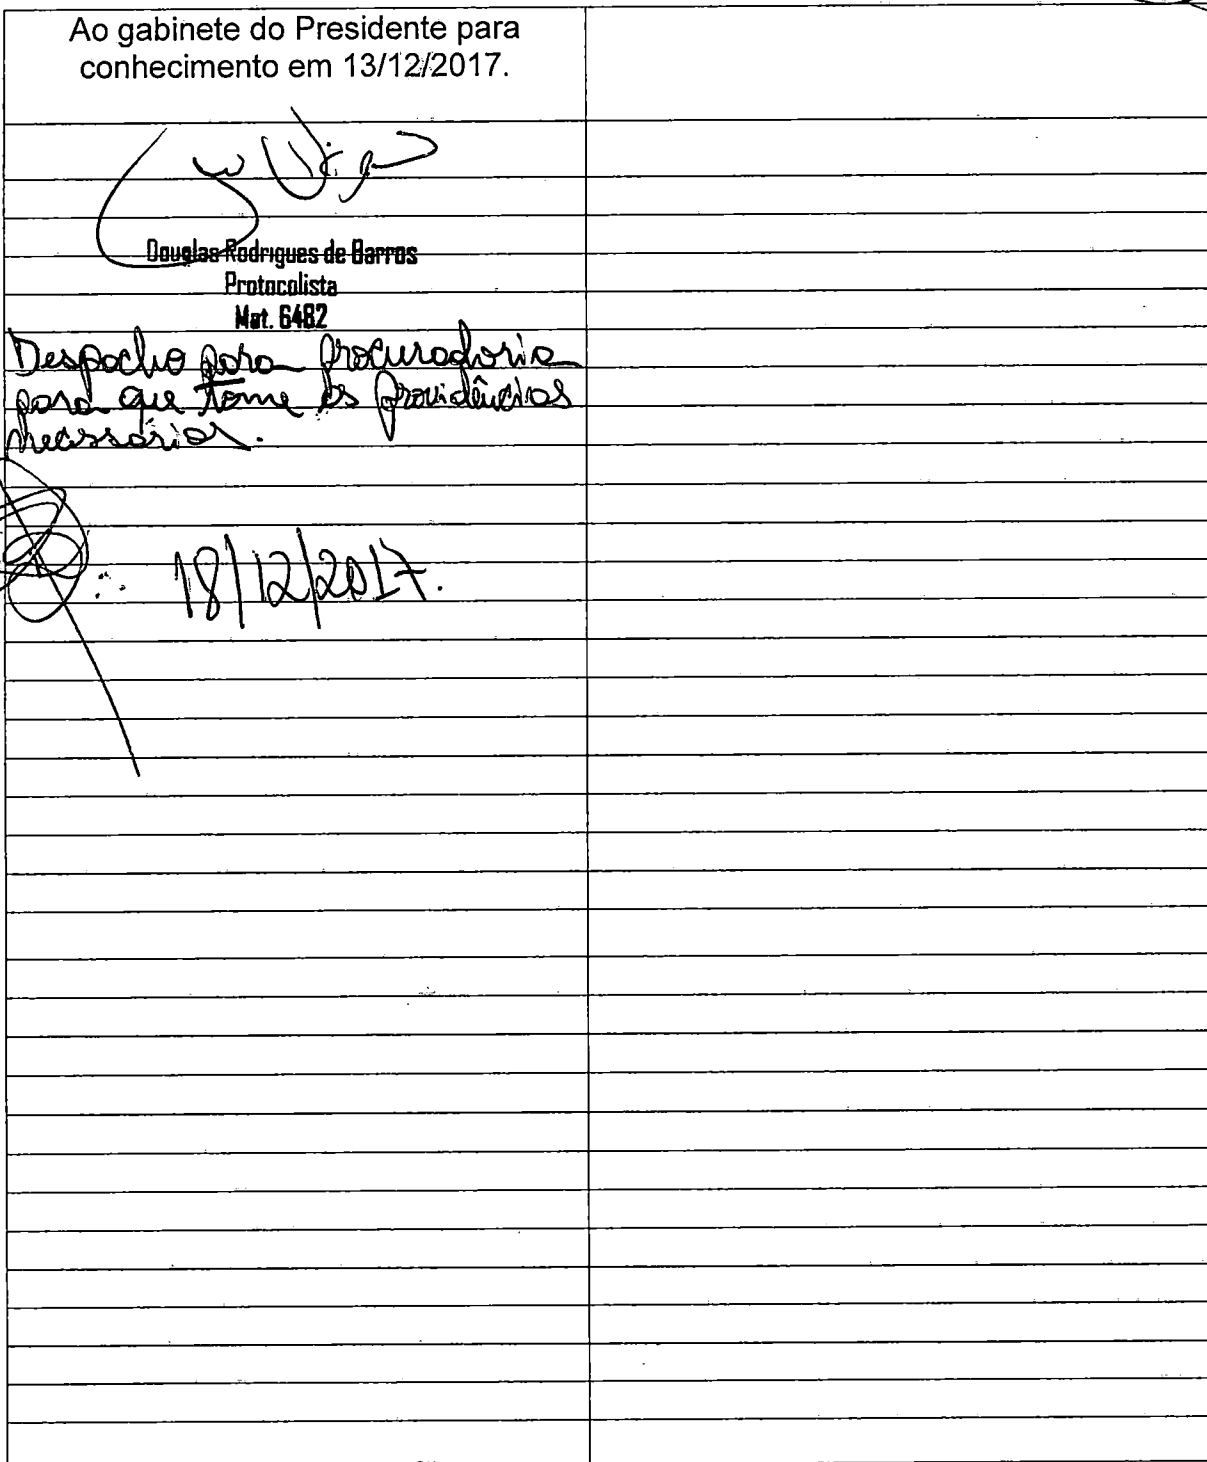 Ao gabinete do Presidente para
conhecimento em 13/12/2017.
Douglas Rodrigues de Barros
Protocolista
Mat. 6482
Despacho para procuradoria
para que tome as providências
necessárias.
18/12/2017.